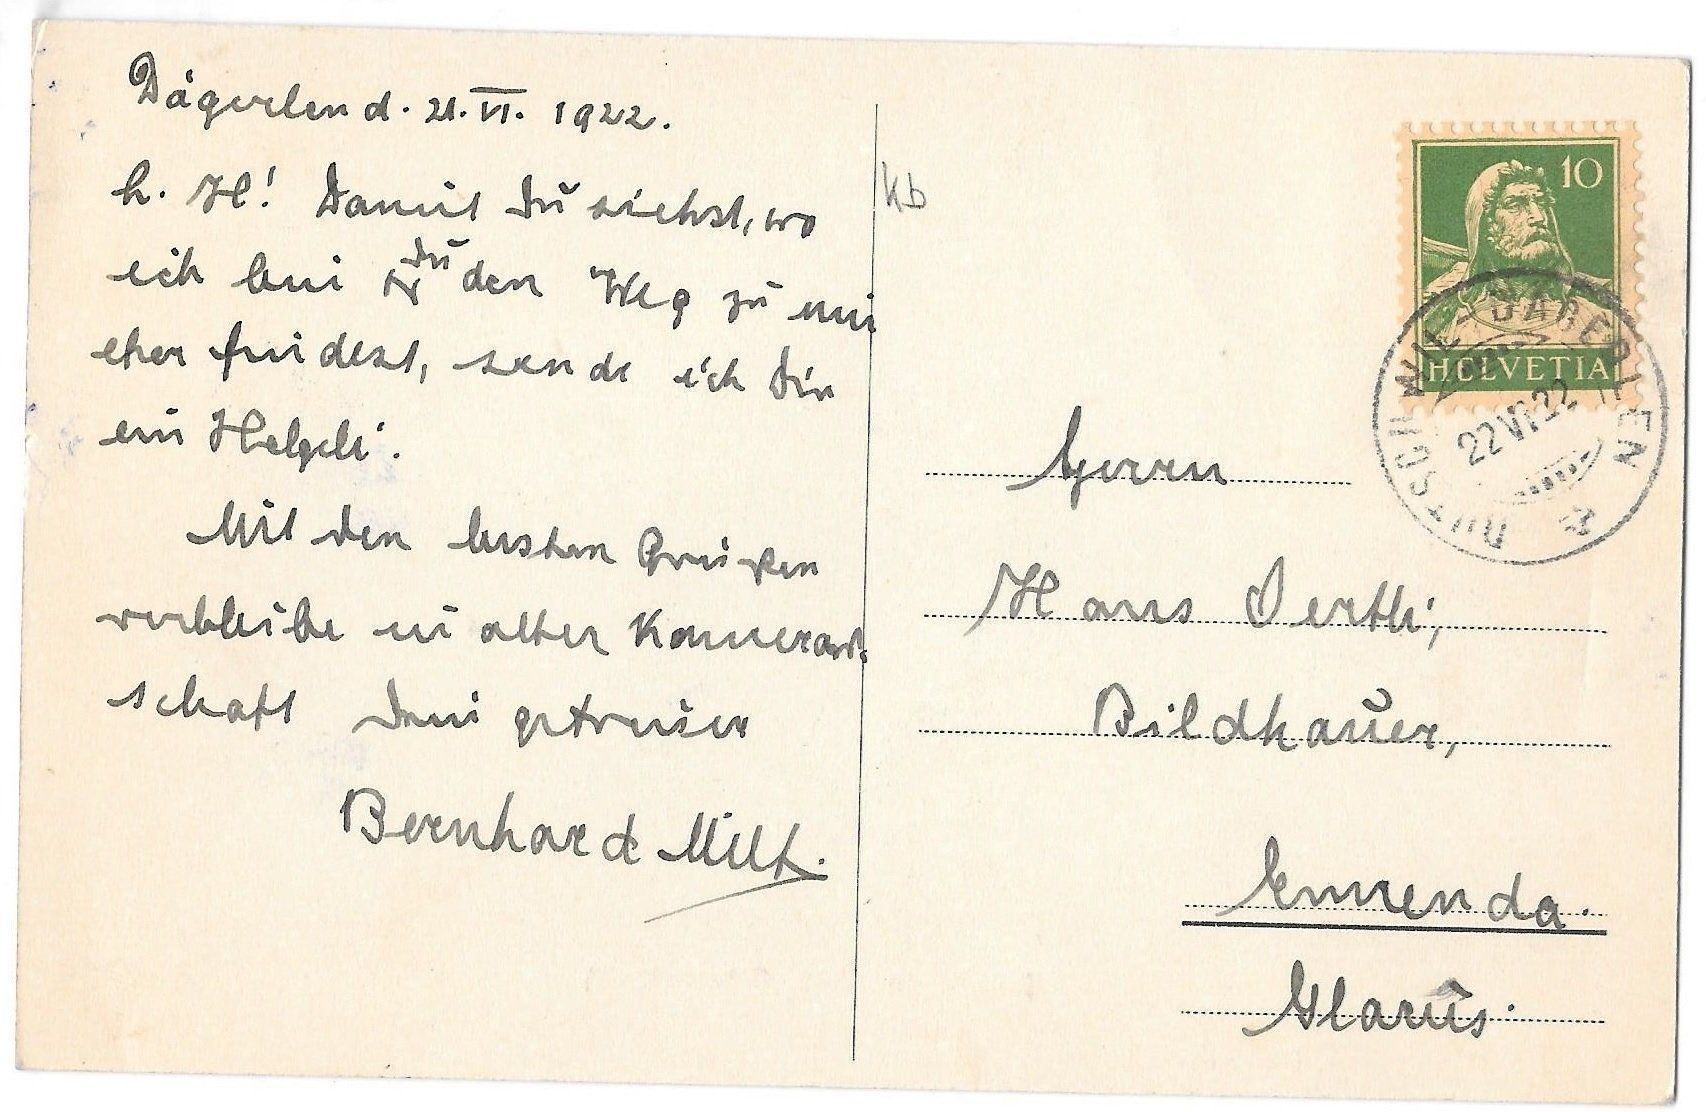 Dägerlen d. 21. VI. 1922.
L. H! Damit Du siehst, wo
ich bin & Du den Weg zu mir
eher findest, sende ich Dir
ein Helgeli.
Mit den besten Grüssen
verbleibe in alter Kamerad-
schaft Dein getreuer
Bernhard Milt.
kb
10
HELVETIA
RUTSCHWIL-DÄGERLEN
22 VI 22
Herrn
Hans Oertli,
Bildhauer,
Ennenda.
Glarus.